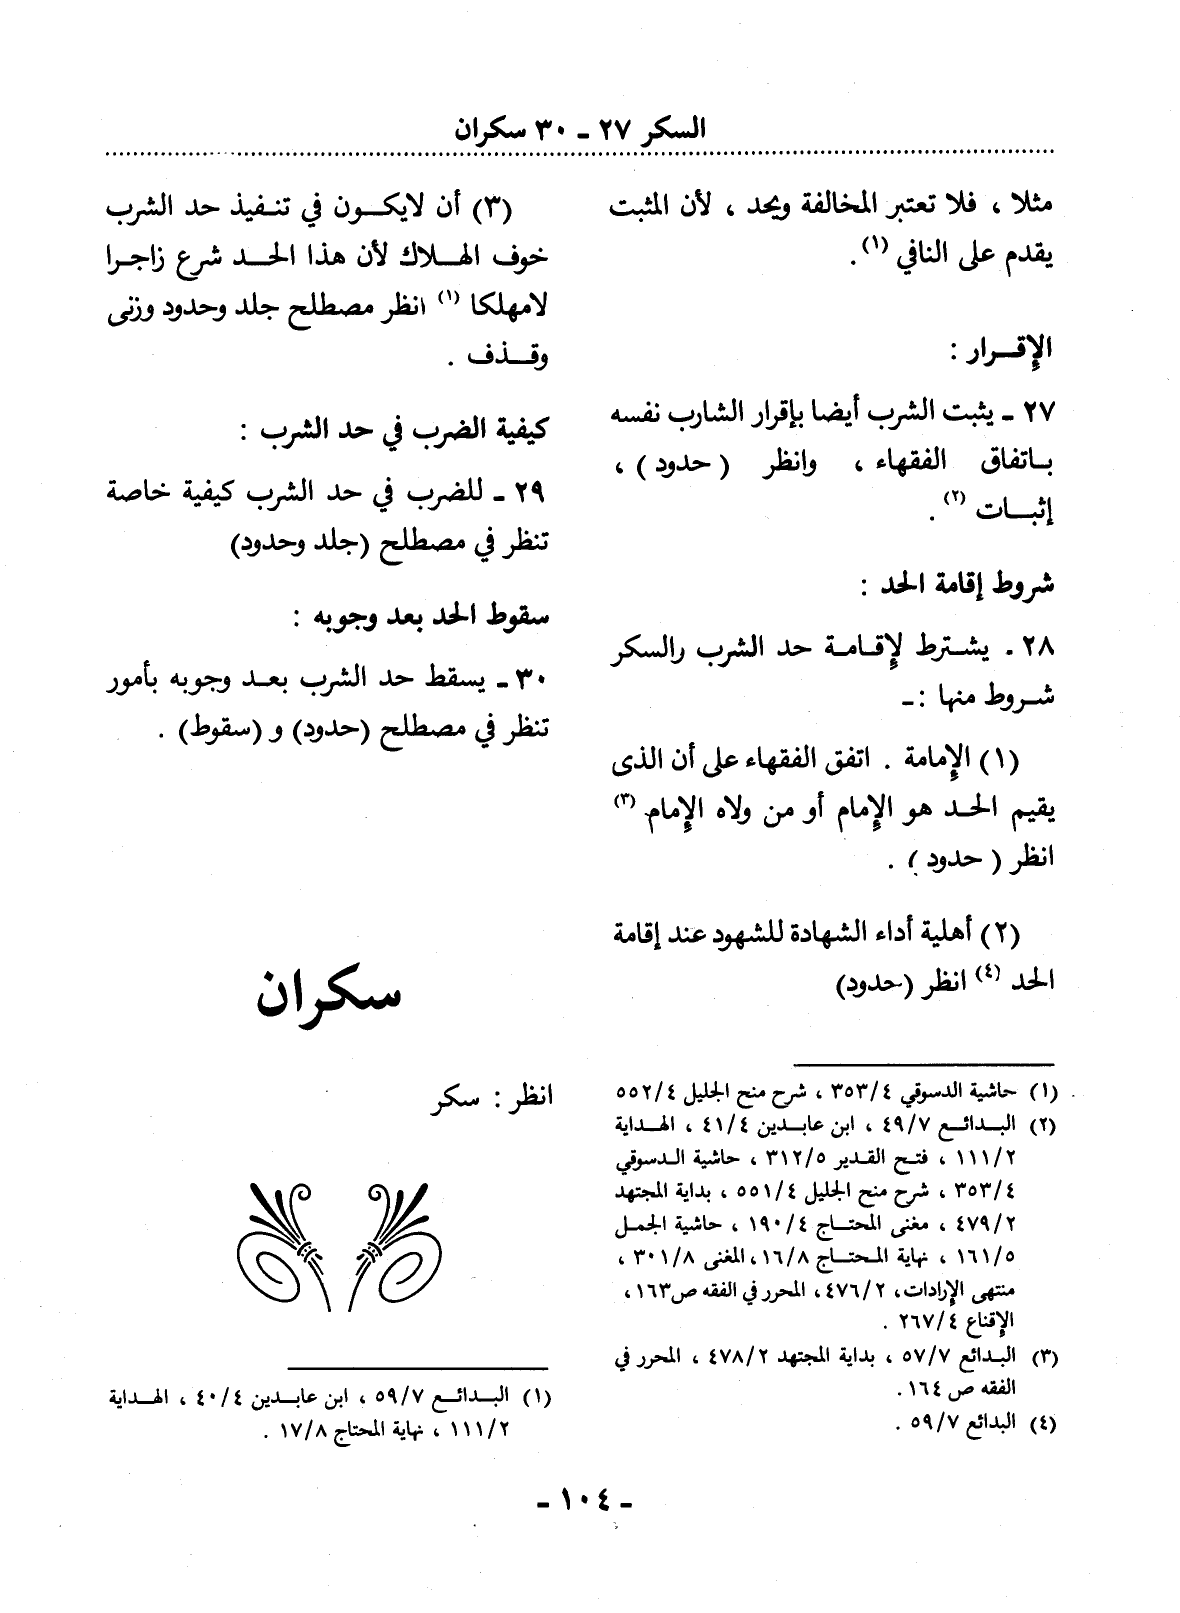 السكر ٢٧ ـ ٣٠ سكران
مثلا ، فلا تعتبر المخالفة ويحد ، لأن المثبت
يقدم على النافي (١) .
الإقـــرار :
٢٧ ـ يثبت الشرب أيضا بإقرار الشارب نفسه
بـاتفاق الفقهاء ، وانظر ( حدود ) ،
إثبــات (٢) .
شروط إقامة الحد :
٢٨ ـ يشـترط لإقـامـة حد الشرب والسكر
شـروط منها : ـ
(١) الإمامة . اتفق الفقهاء على أن الذى
يقيم الحـد هو الإمام أو من ولاه الإمام (٣)
انظر ( حدود ) .
(٢) أهلية أداء الشهادة للشهود عند إقامة
الحد (٤) انظر (حدود)
(١) حاشية الدسوقي ٣٥٣/٤ ، شرح منح الجليل ٥٥٢/٤
(٢) البـدائـع ٤٩/٧ ، ابن عابـدين ٤١/٤ ، الهـداية
١١١/٢ ، فتـح القـدير ٣١٢/٥ ، حاشية الـدسوقي
٣٥٣/٤ ، شرح منح الجليل ٥٥١/٤ ، بداية المجتهد
٤٧٩/٢ ، مغنى المحتـاج ١٩٠/٤ ، حاشية الجمـل
١٦١/٥ ، نهاية المـحتـاج ١٦/٨ ، المغنى ٣٠١/٨ ،
منتهى الإرادات، ٤٧٦/٢ ، المحرر في الفقه ص١٦٣ ،
الإقناع ٢٦٧/٤ .
(٣) البـدائع ٥٧/٧ ، بداية المجتهد ٤٧٨/٢ ، المحرر في
الفقه ص ١٦٤ .
(٤) البدائع ٥٩/٧ .
(٣) أن لايكـــون في تنـفيذ حد الشرب
خوف الهـــلاك لأن هذا الحـــد شرع زاجـرا
لامهلكا (١) انظر مصطلح جلد وحدود وزنى
وقـــذف .
كيفية الضرب في حد الشرب :
٢٩ ـ للضرب في حد الشرب كيفية خاصة
تنظر في مصطلح (جلد وحدود)
سقوط الحد بعد وجوبه :
٣٠ ـ يسقط حد الشرب بعـد وجوبه بأمور
تنظر في مصطلح (حدود) و (سقوط) .
سكران
انظر : سكر
(١) البـدائــع ٥٩/٧ ، ابن عابـدين ٤٠/٤ ، الهـداية
١١١/٢ ، نهاية المحتاج ١٧/٨ .
ـ ١٠٤ ـ